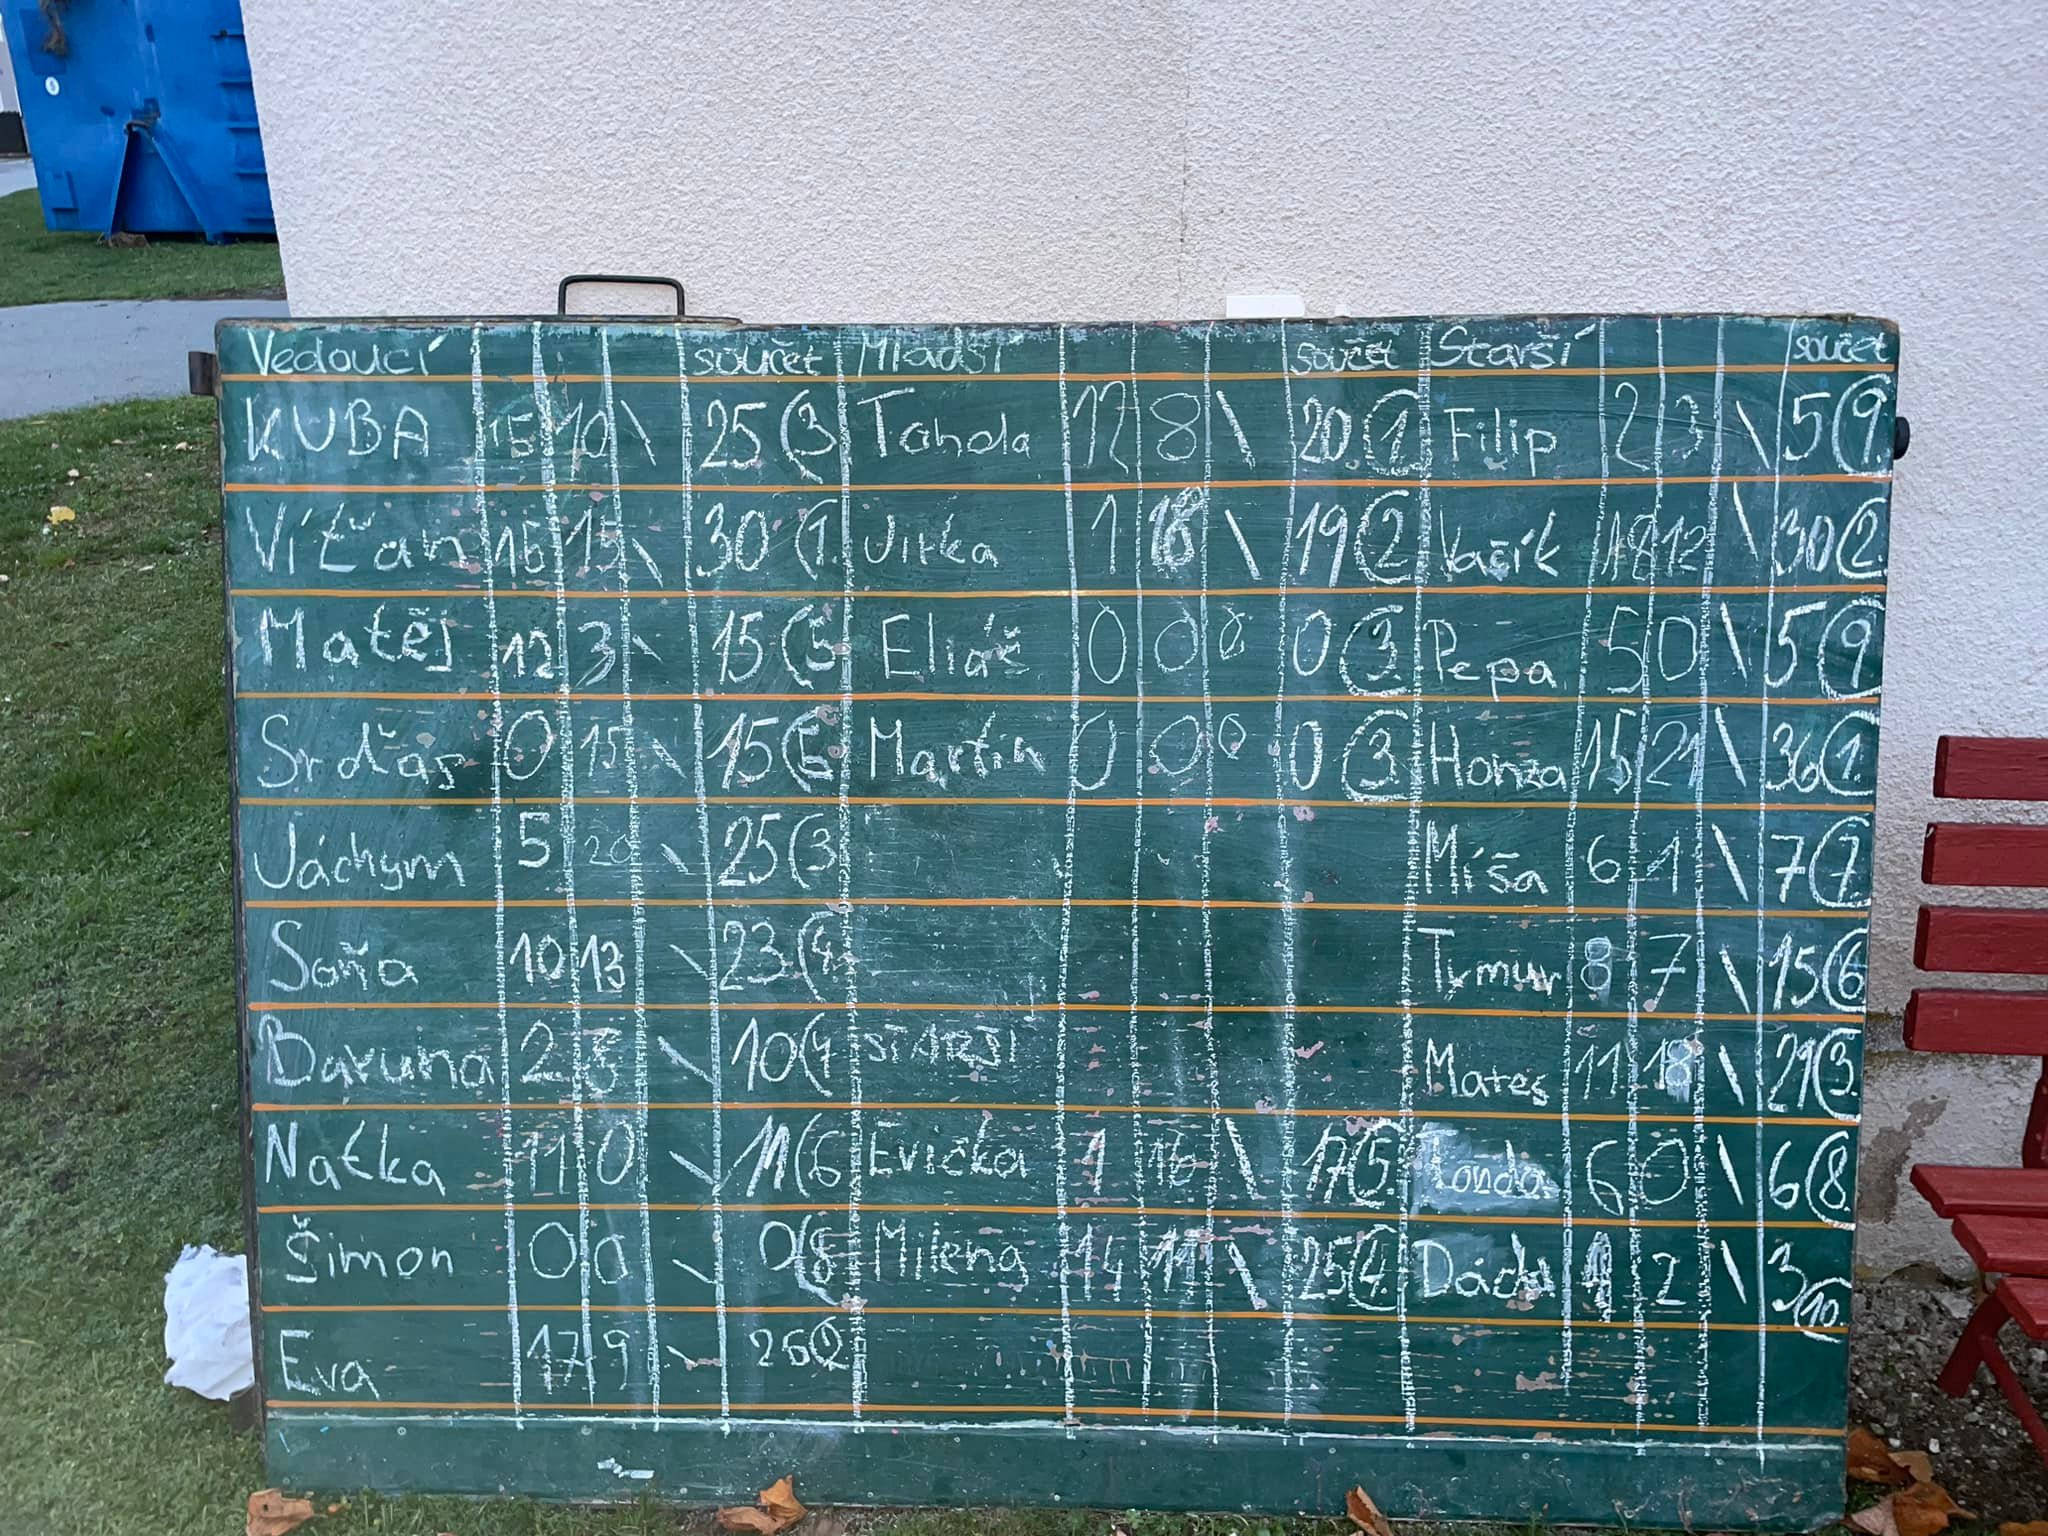 Vedoucí součet Mladší součet Starší součet
KUBA 15 10 \ 25 3 Tonda 12 8 \ 20. 1. Filip 2 3 \ 5 9.
Víťan 15 15 \ 30 1. Jirka 1 18 \ 19 2 Vašík 18 12 \ 30 2.
Matěj 12 3 \ 15 5 Eliáš 0 0 0 0 3. Pepa 5 0 \ 5 9
Srďas 0 15 \ 15 5 Martin 0 0 0 0 3. Honza 15 21 \ 36 1.
Jáchym 5 20 \ 25 3 Míša 6 1 \ 7 7.
Soňa 10 13 \ 23 4 Tymur 8 7 \ 15 6
Baruna 2 \ 10 STARŠÍ Mates 11 18 \ 29 3.
Natka 11 0 \ 11 6 Evička 1 16 \ 17 5. Tonda 6 0 \ 6 8.
Šimon 0 0 \ 0 8 Milena 14 11 \ 25 4. Dáda 1 2 \ 3 10.
Eva 17 9 \ 26 2